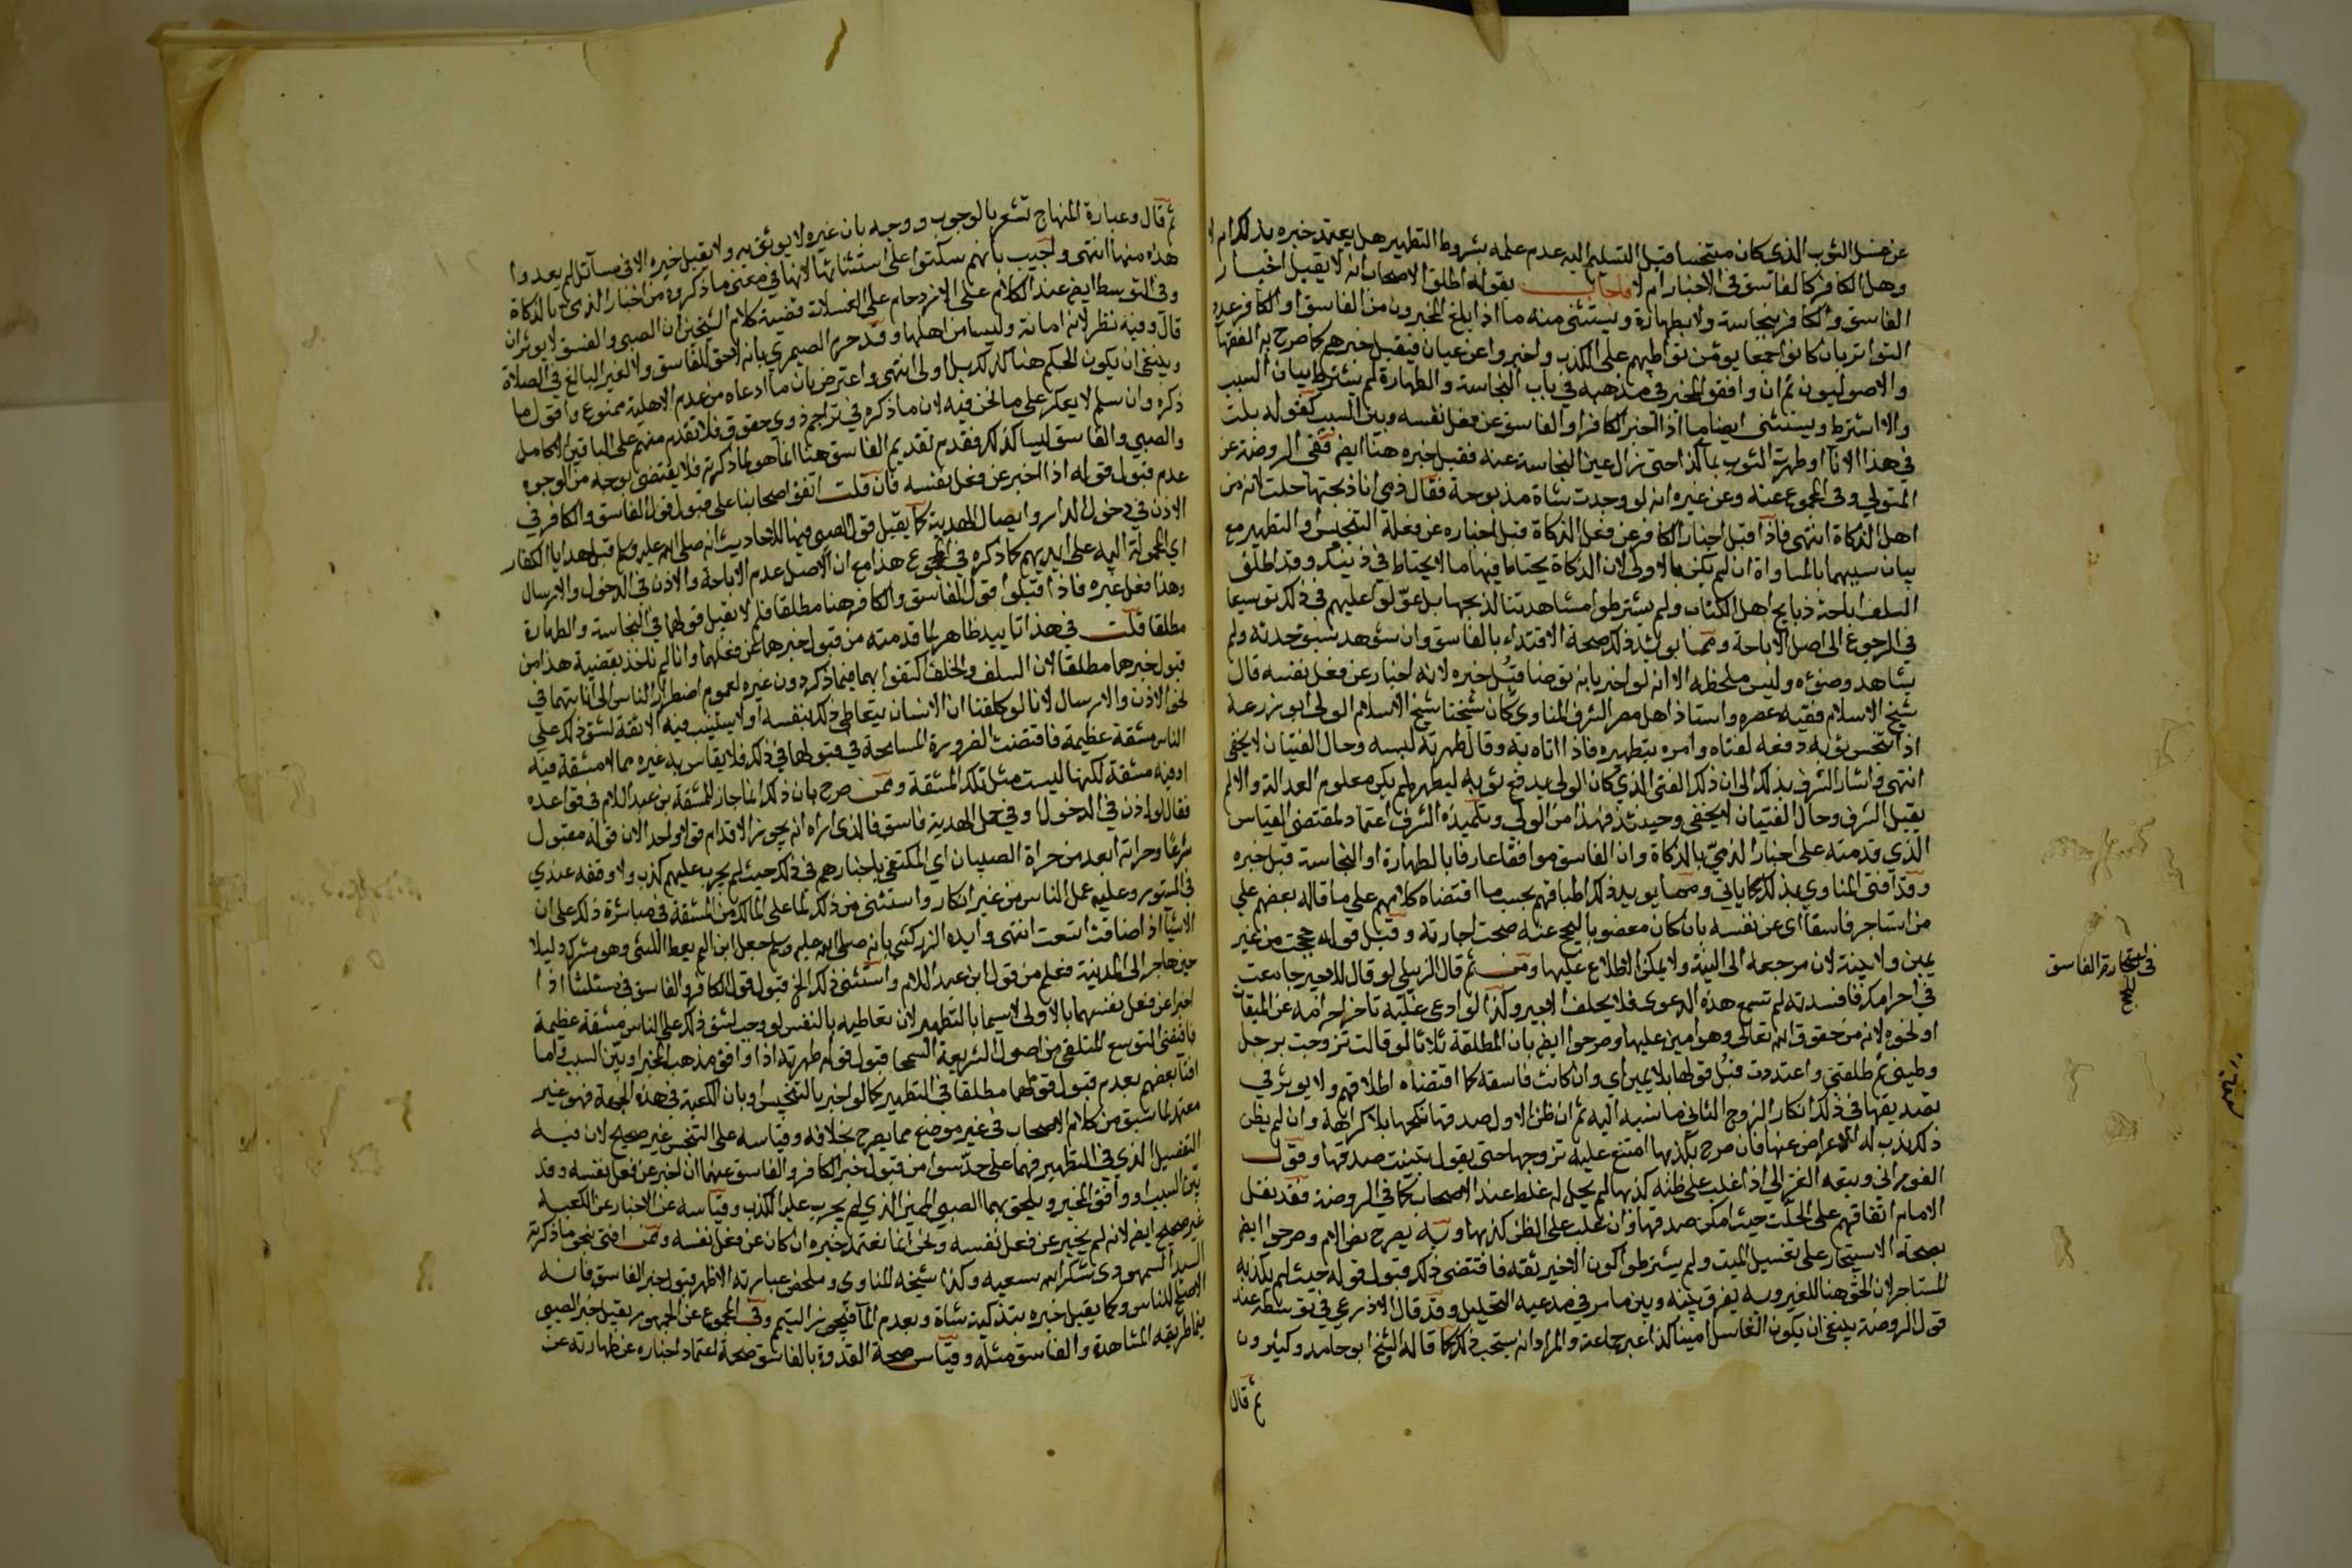 عن غسل الثوب الذى كان متنجسا قبل التسليم اليه عدم علمه بشروط التطهير هل يعتمد خبره بذلك ام لا
وهل الكافر كالفاسق فى الاخبار ام لا فاجاب بقوله اطلق الاصحاب انه لا يقبل اخبار
الفاسق والكافر بنجاسة ولا بطهارة ويستثنى منه ما اذا بلغ المخبرون من الفاسق او الكافر عدد
التواتر بان كانوا جمعا يؤمن تواطيهم على الكذب واخبروا عن عيان فيقبل خبرهم كما صرح به الفقها
والاصوليون ثم ان وافق المخبر فى مذهبه فى باب النجاسة والطهارة لم يشترط بيان السبب
والا اشترط ويستثنى ايضا ما اذا اخبر الكافر او الفاسق عن فعل نفسه وبين السبب كقوله بلت
في هذا الانآ او طهرت الثوب بمآ كذا حتى زال عين النجاسة عنه فقبل خبره هنا ايضا ففى الروضة عن
المتولي وفى المجموع عنه وعن غيره انه لو وجدت شاة مذبوحة فقال ذمى انا ذبحتها حلت لانه من
اهل الذكاة انتهى فاذا قبل اخبار الكافر عن فعل الذكاة قبل اخباره عن فعله التنجيس او التطهير مع
بيان سببهما بالمساواة ان لم يكن بالاولى لان الذكاة يحتاط فيها ما لا يحتاط في ذينك وقد اطلق
السلف اباحة ذبايح اهل الكتاب ولم يشترطوا مشاهدتنا لذبحها بل عوّلوا عليهم فى ذلك توسيعا
في الرجوع الى اصل الاباحة ومما يويد ذلك صحة الاقتداء بالفاسق وان شوهد سبق حدثه ولم
يشاهد وضوءه وليس ملحظه الا انه لو اخبر بانه توضا قُبل خبره لانه اخبار عن فعل نفسه قال
شيخ الاسلام فقيه عصره واستاذ اهل مصر الشرف المناوى كان شيخنا شيخ الاسلام الولى ابو زرعة
اذا تنجس ثوبه دفعه لفتاه وامره بتطهيره فاذا اتاه به وقال طهرته لبسه وحال الفتيان لا يخفى
انتهى فاشار الشرف بذلك الى ان ذلك الفتى الذى كان الولى يدفع ثوبه ليطهره لم يكن معلوم العدالة والا لم
يقبل الشرف وحال الفتيان لا يخفى وحينئذ فهذا من الولي وتلميذه الشرف اعتماد لمقتضى القياس
الذي قدمته على اخبار الذميّ بالذكاة وان الفاسق موافقا عارفا بالطهارة او النجاسة قبل خبره
وقد افتى المناوي بذلك كما ياتي ومما يويد ذلك اطباقهم بحسب ما اقتضاه كلامهم على ما قاله بعضهم علي
من استاجر فاسقا اى عن نفسه بان كان معضوبا ليحج عنه صحت اجارته وقبل قوله حججت من غير
يمين ولا بينة لان مرجعه الى النية ولا يمكن الاطلاع عليها ومن ثم قال الزبيلى لو قال للاجير جامعت
في احرامك فافسدته لم تسمع هذه الدعوى فلا يحلف الاجير وكذا لو ادعى عليه تاخر احرامه عن الميقات
او نحوه لانه من حقوق الله تعالى وهو امين عليها وصرحوا ايضا بان المطلقة ثلاثا لو قالت تزوجت برجل
وطيني ثم طلقني واعتددت قبل قولها بلا يمين اي وان كانت فاسقة كما اقتضاه اطلاقهم ولا يوثر في
تصديقها فى ذلك انكار الزوج الثانى ما نسبه اليه ثم ان ظن الاول صدقها نكحها بلا كراهة وان لم يظن
ذلك ندب له الاعراض عنها فان صرح بكذبها امتنع عليه تزوجها حتى يقول تبينت صدقها وقول
الفورانى وتبعه الغزالي اذا غلب على ظنه كذبها لم يحل له غلط عند الاصحاب كما في الروضة فقد نقل
الامام اتفاقهم على الحلّ حيث امكن صدقها وان غلب على الظن كذبها وبه يصرح نص الام وصرحوا ايضا
بصحة الاستيجار على تغسيل الميت ولم يشترطوا كون الاجير ثقة فاقتضى ذلك قبول قوله حيث لم يكذبه
المستاجر لان الحق هنا للغير وبه يفرق بينه وبين ما مر في مدعيه التحليل وقد قال الاذرعي في توسطه عند
قول الروضة ينبغى ان يكون الغاسل امينا كذا عبر جماعة والمراد انه يستحب ذلك كما قاله الشيخ ابو حامد وكثيرون
ثم قال
فى استجارة الفاسق
للحج
ثم قال وعبارة المنهاج تشعر بالوجوب ووجه بان غيره لا يوثق به ولا يقبل خبره الا فى مسآئل لم يعدوا
هذه منها انتهى واجيب بانهم سكتوا على استثنائها لانها في معنى ما ذكروه من اخبار الذمى بالذكاة
وفى التوسط ايضا عند الكلام على الازدحام على الغسلات قضية كلام الشيخين ان الصبى والفسق لا يوثران
قال وفيه نظر لانه امانة وليسا من اهلها وقد حرم الصيمري بانه لا حق للفاسق ولا لغير البالغ في الصلاة
وينبغى ان يكون الحكم هنا كذلك بل اولى انتهى واعترض بان ما ادعاه من عدم الاهلية ممنوع واقول ما
ذكره وان سلم لا يعكر على ما نحن فيه لان ما ذكره في تزاحم ذوى حقوق فلا تقدم منهم على الباقين الا كامل
والصبي والفاسق ليسا كذلك فقدم تقديم الفاسق هنا انما هو لما ذكرته فلا يقتضى بوجه من الوجوه
عدم قبول قوله اذا اخبر عن فعل نفسه فان قلت اتفق اصحابنا على قبول قول الفاسق والكافر في
الاذن في دخول الدار وايصال الهدية كما يقبل قول الصبى فيها للاحاديث انه صلى الله عليه وسلم قبل هدايا الكفار
اي المحمولة اليه على ايديهم كما ذكره فى المجموع هذا مع ان الاصل عدم الاباحة والاذن فى الدخول والارسال
وهذا فعل غيره فاذا قبلوا قول الفاسق والكافر هنا مطلقا فلم لا يقبل قولهما في النجاسة والطهارة
مطلقا قلت في هذا تاييد ظاهر لما قدمته من قبول خبرهما عن فعلهما وانا لم ناخذ بقضية هذا من
قبول خبرهما مطلقا لان السلف والخلف اكتفوا بهما فيما ذكر دون غيره لعموم اضطرار الناس الى انابتهما في
نحو الاذن والارسال لانا لو كلفنا ان الانسان يتعاطى ذلك بنفسه او لا يستنيب فيه الا ثقة لشق ذلك على
الناس مشقة عظيمة فاقتضت الضرورة المسامحة في قبولهما في ذلك فلا يقاس به غيره مما لا مشقة فيه
او فيه مشقة لكنها ليست مثل تلك المشقة وممن صرح بان ذلك انما جاز للمشقة بن عبد السلام فى قواعده
فقال لو اذن في الدخول او في حمل الهدية فاسق فالذى اراه انه يجوز الاقدام قولا واحدا لان قوله مقبول
شرعًا وجراته ابعد من جراة الصبيان اي المكتفى باخبارهم فى ذلك حيث لم يجرب عليهم كذب ولا وقفه عندي
في المستور وعليه عمل الناس من غير انكار واستثنى من ذلك لما على المالك من المشقة فى مباشرة ذلك على ان
الاشيآ اذا ضاقت اتسعت انتهى وايده الزركشى بانه صلى الله عليه وسلم جعل ابن اريقط الليثى وهو مشرك دليلا
حين هاجر الى المدينة فعلم من قول ابن عبد السلام واستثنى ذلك الخ قبول قول الكافر والفاسق فى مسئلتنا اذا
اخبرا عن فعل نفسهما بالاولى لا سيما بالتطهير لان تعاطيه بالنفس لو وجب لشق ذلك على الناس مشقة عظيمة
فاقتضى التوسع المتلقى من اصول الشريعة السمحا قبول قوله طهرته اذا وافق مذهب المخبر او بيّن السبب واما
افتا بعضهم بعدم قبول قولهما مطلقا في التطهير كما لو اخبر بالتنجيس او بان الكعبة فى هذه الجهة فهو غير
معتمد لما سبق من كلام الاصحاب فى غير موضع مما يصرح بخلافه وقياسه على التنجس غير صحيح لان فيه
التفصيل الذى في التطهير فهما على حدّ سوا من قبول خبر الكافر والفاسق عنهما ان اخبر عن فعل نفسه وقد
بيّن السبب او وافق المخبر ويلحق بهما الصبى المميز الذي لم يجرب عليه الكذب وقياسه عن الاخبار عن الكعبة
غير صحيح ايضا لانه لم يخبر عن فعل نفسه ونحن انما نعتمد خبره ان كان عن فعل نفسه وممن افتى بنحو ما ذكرته
السيد السمهودى شكر الله سعيه وكذا شيخه المناوى وملخص عبارته الاظهر قبول خبر الفاسق فانه
الاصلح للناس وكما يقبل خبره بتذكية شاة وبعدم المآ فيجوز التيمم وفى المجموع عن الجمهور يقبل خبر الصبى
فيما طريقه المشاهدة والفاسق مثله وقياس صحة القدوة بالفاسق صحة اعتماد اخباره عن طهارته عن